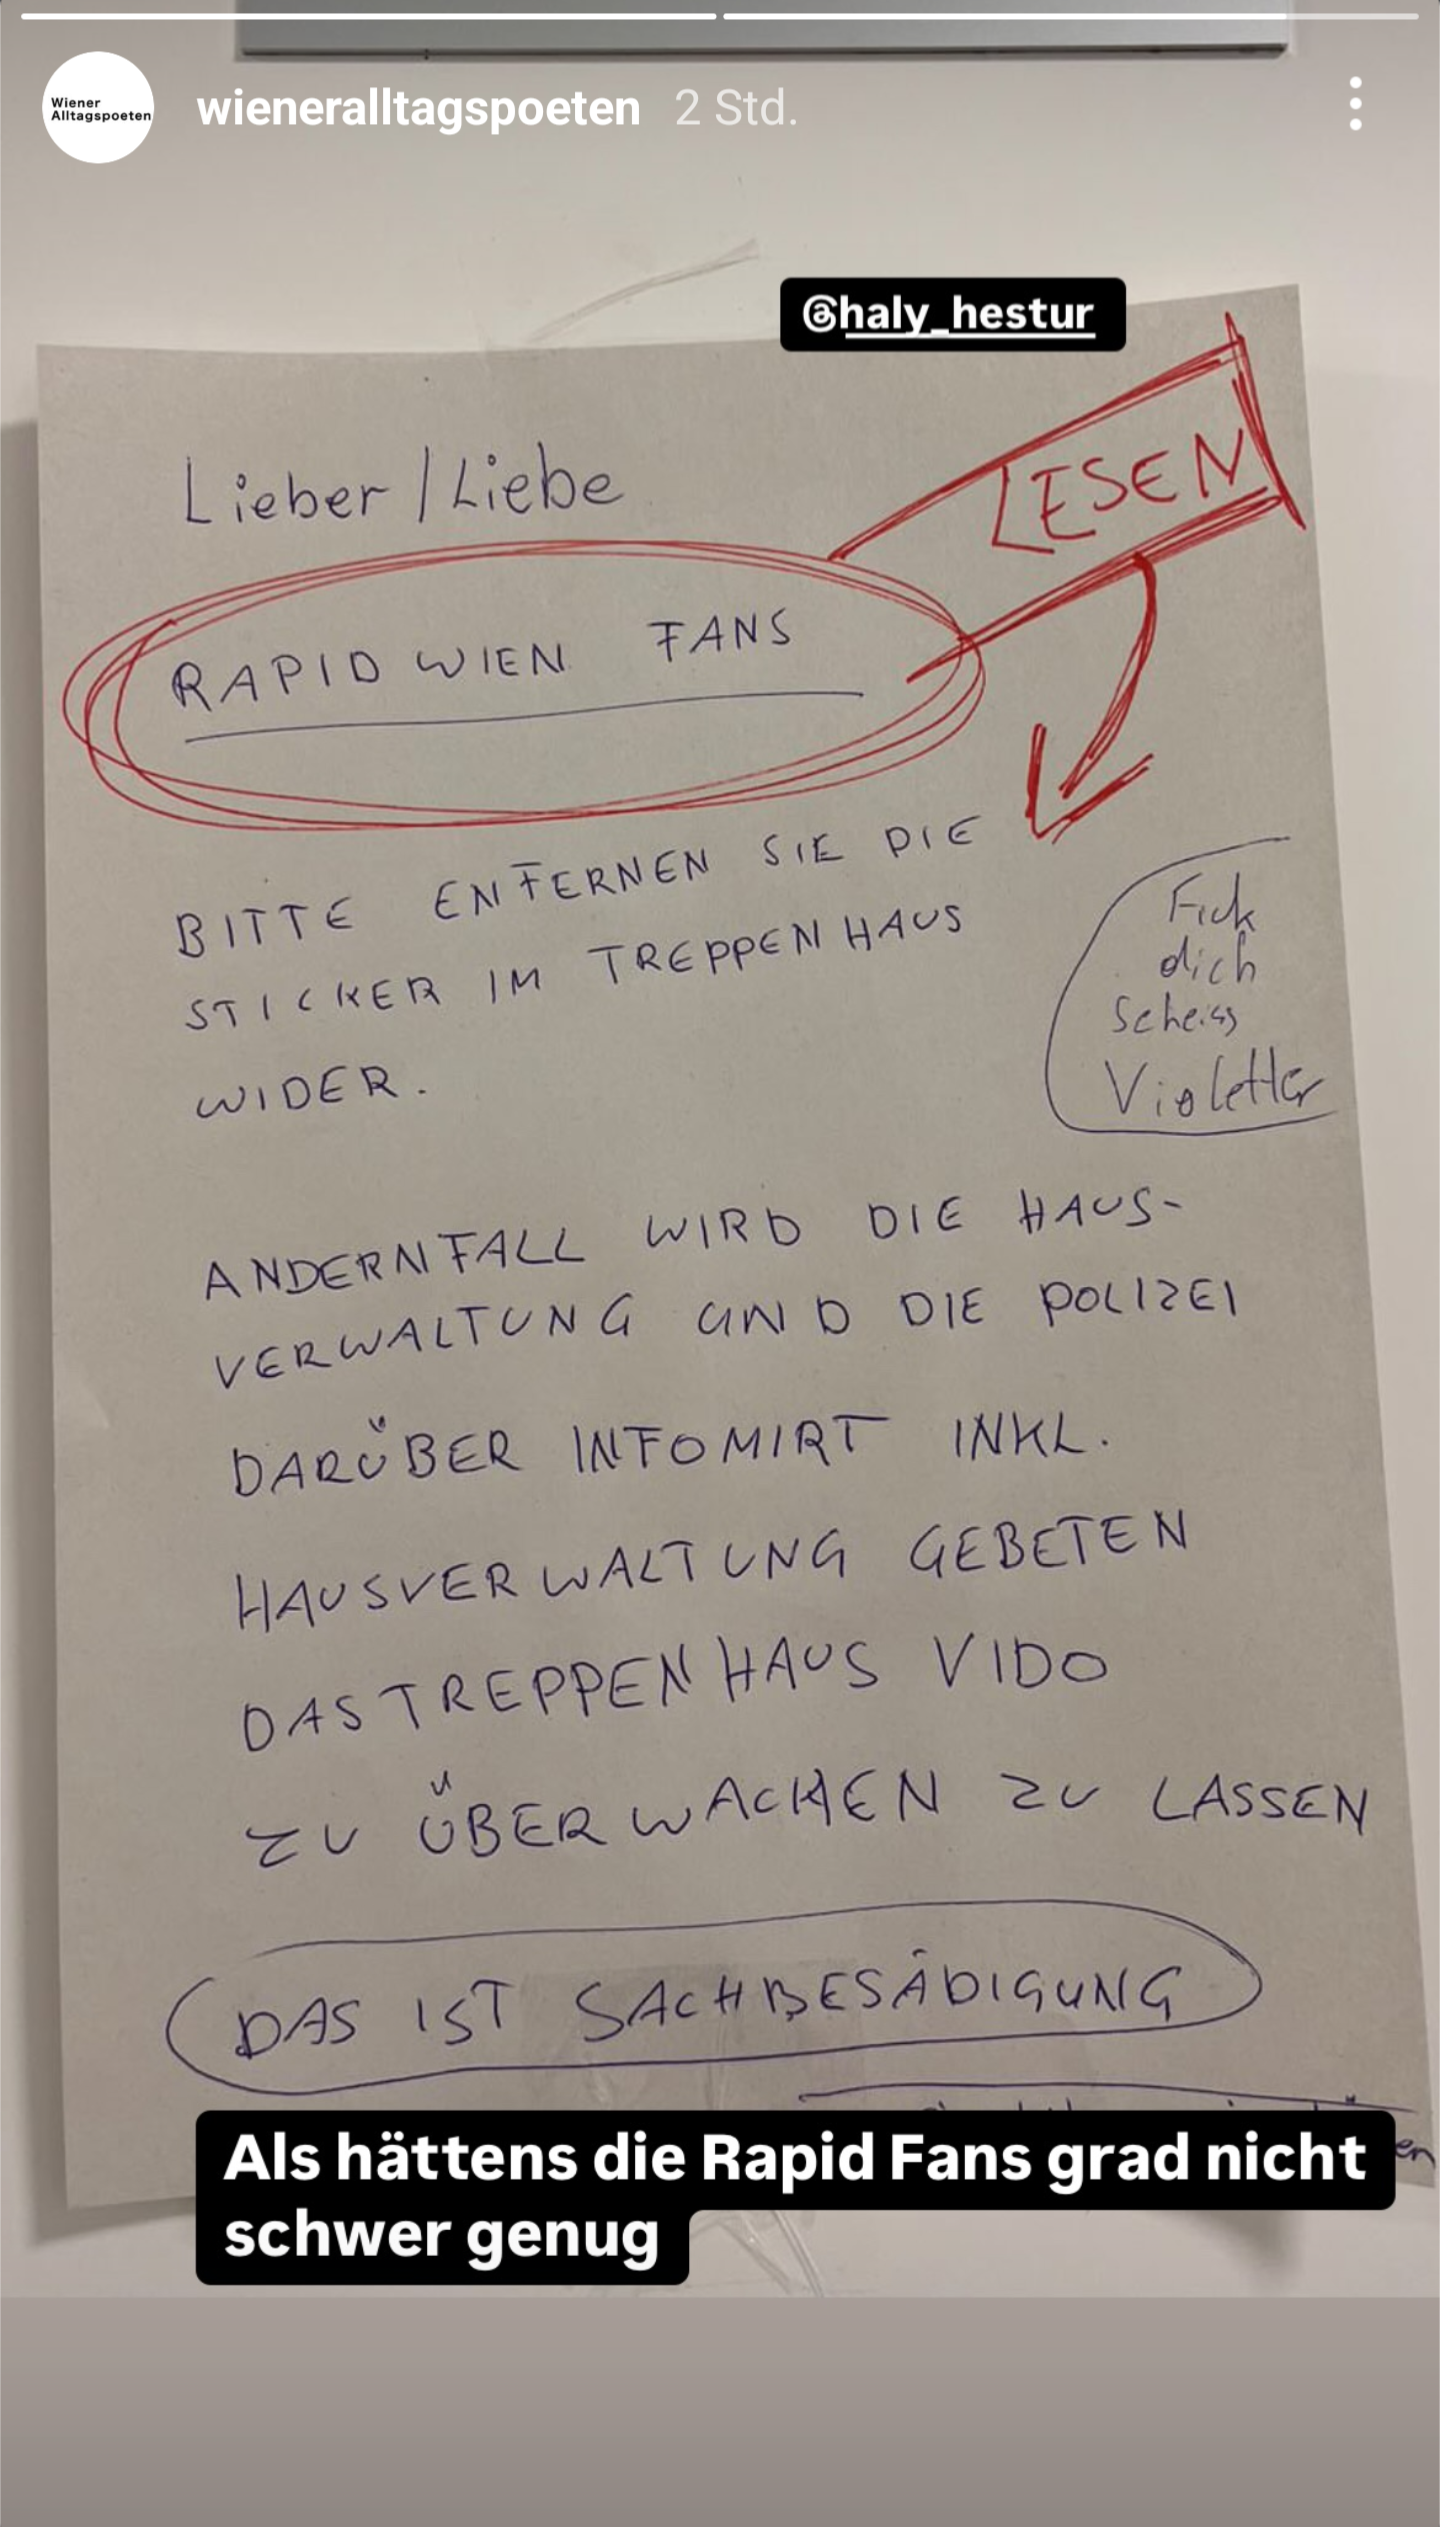 Wiener
Alltagspoeten
wieneralltagspoeten 2 Std.
@haly_hestur
LESEN
Lieber / Liebe
RAPID WIEN FANS
BITTE ENTFERNEN SIE DIE
STICKER IM TREPPENHAUS
WIDER.
Fick
dich
Scheiss
Violetter
ANDERNFALL WIRD DIE HAUS-
VERWALTUNG UND DIE POLIZEI
DARÜBER INFOMIRT INKL.
HAUSVERWALTUNG GEBETEN
DAS TREPPENHAUS VIDO
ZU ÜBERWACHEN ZU LASSEN
DAS IST SACHBESÄDIGUNG
Als hättens die Rapid Fans grad nicht
schwer genug